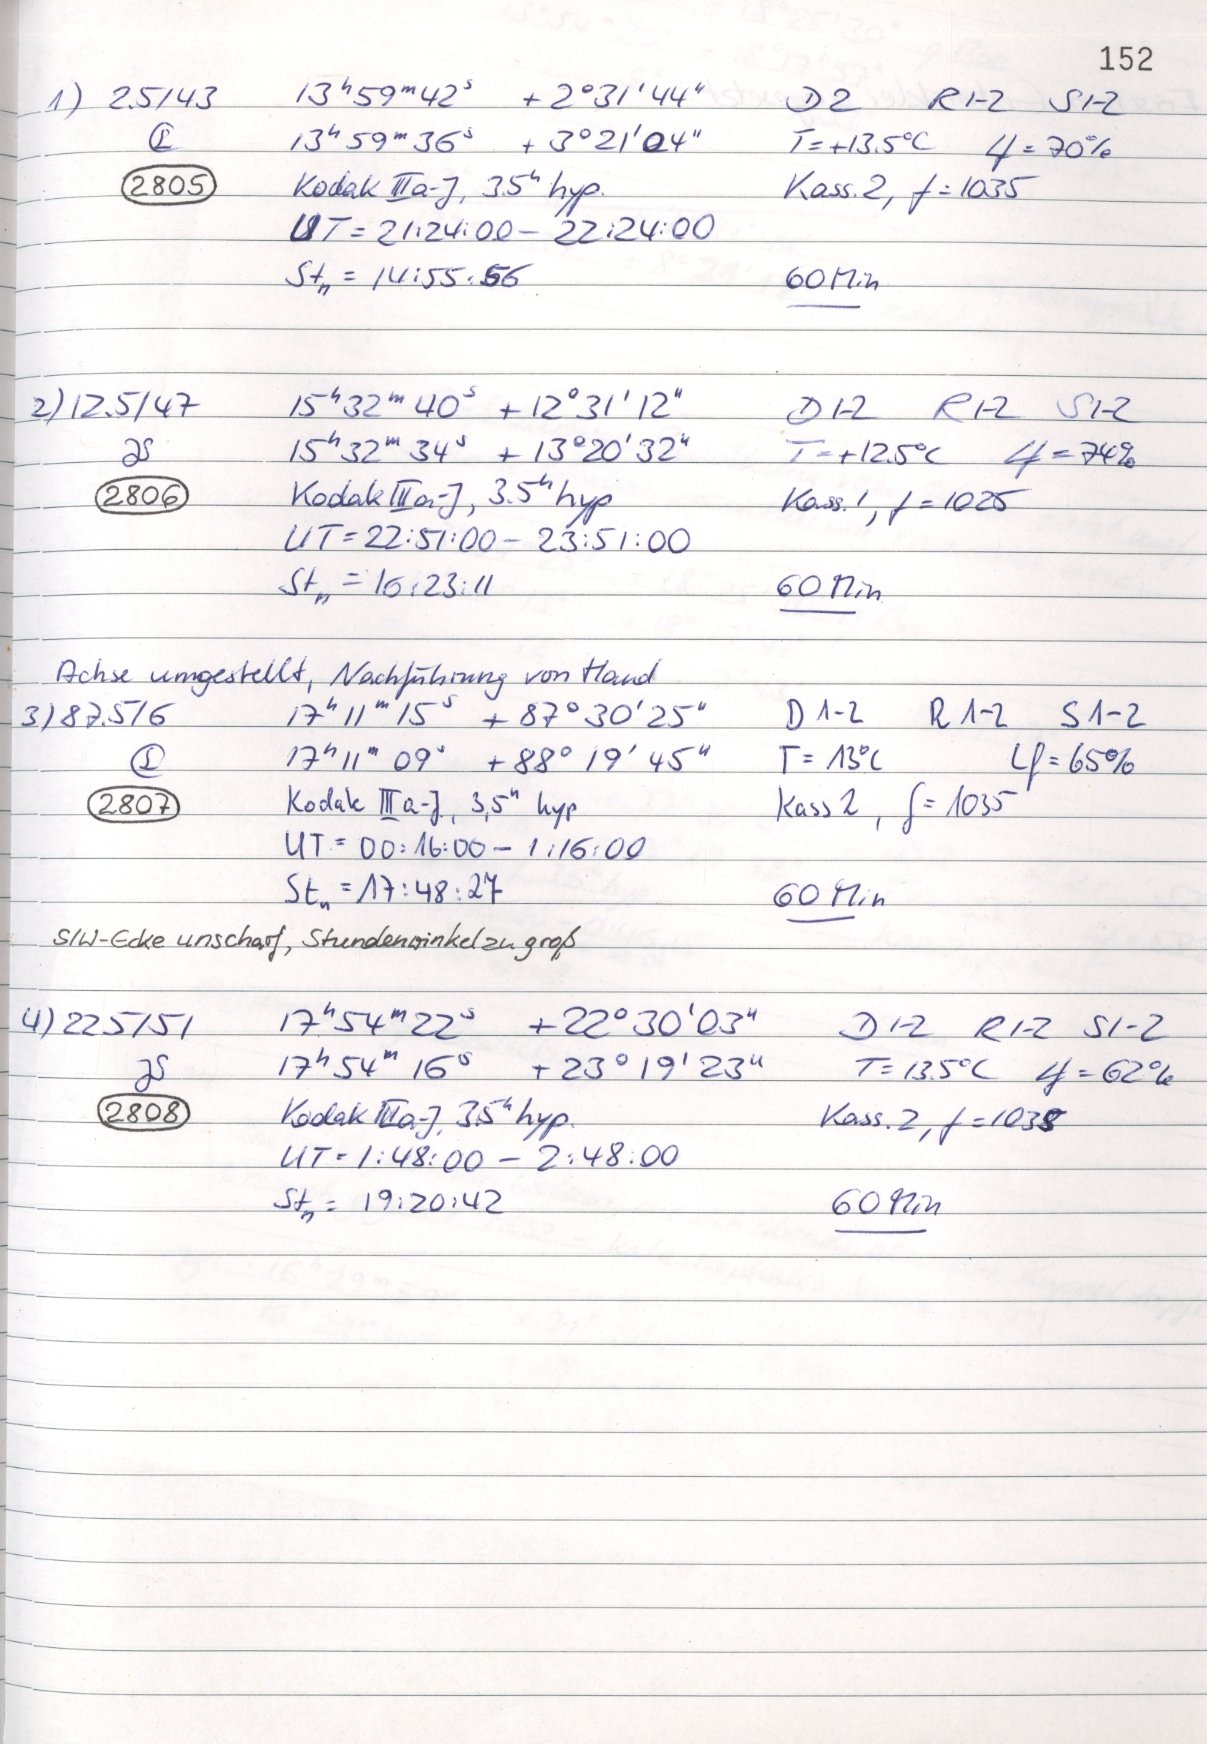 152
1) 2.5/43 13ʰ59ᵐ42ˢ +2°31'44" D2 R1-2 S1-2
13ʰ59ᵐ36ˢ +3°21'04" T=+13.5°C Lf=70%
2805 Kodak IIIa-J, 3.5ʰ hyp. Kass. 2, f=1035
UT=21:24:00-22:24:00
Stₙ=14:55:56 60 Min
2) 12.5/47 15ʰ32ᵐ40ˢ +12°31'12" D1-2 R1-2 S1-2
15ʰ32ᵐ34ˢ +13°20'32" T=+12.5°C Lf=74%
2806 Kodak IIIa-J, 3.5ʰ hyp Kass. 1, f=1025
UT=22:51:00-23:51:00
Stₙ=16:23:11 60 Min
Achse umgestellt, Nachführung von Hand
3) 87.5/6 17ʰ11ᵐ15ˢ +87°30'25" D1-2 R1-2 S1-2
17ʰ11ᵐ09ˢ +88°19'45" T=13°C Lf=65%
2807 Kodak IIIa-J, 3,5ʰ hyp Kass 2, f=1035
UT=00:16:00-1:16:00
Stₙ=17:48:27 60 Min
S/W-Ecke unscharf, Stundenwinkel zu groß
4) 22.5/51 17ʰ54ᵐ22ˢ +22°30'03" D1-2 R1-2 S1-2
17ʰ54ᵐ16ˢ +23°19'23" T=13.5°C Lf=62%
2808 Kodak IIIa-J, 3.5ʰ hyp. Kass. 2, f=1035
UT=1:48:00-2:48:00
Stₙ=19:20:42 60 Min